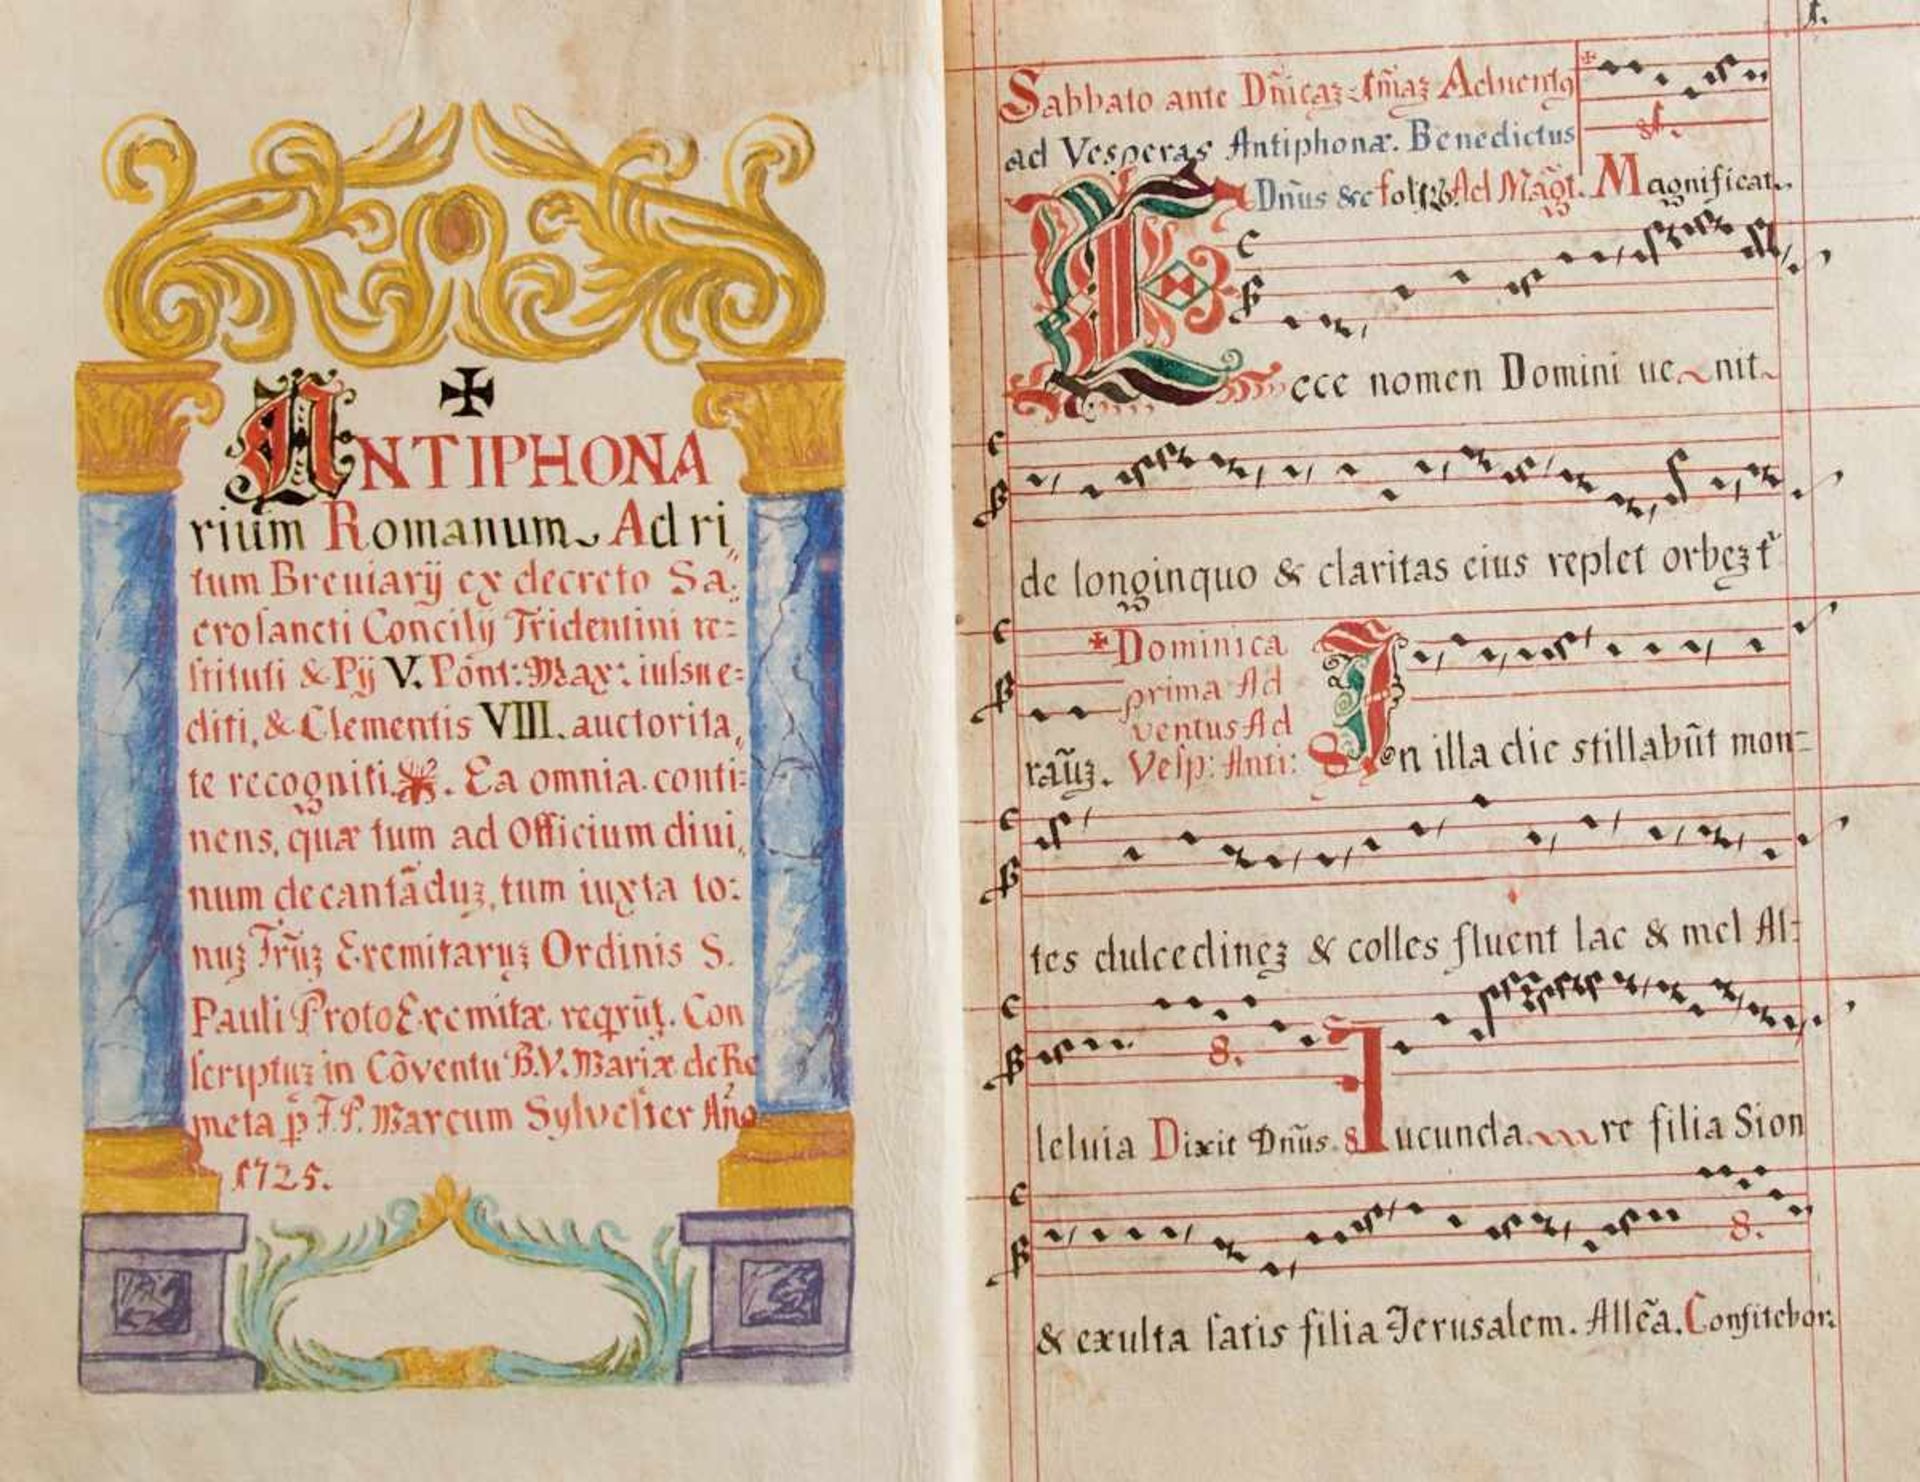 ✠
ANTIPHONA
rium Romanum Ad ri„
tum Breuiarij ex decreto Sa:
crosancti Concilij Tridentini re=
stituti & Pij V. Pont: Max: iussu e=
diti, & Clementis VIII. auctorita„
te recogniti. Ea omnia conti=
nens, quæ tum ad Officium diui„
num decantãduʒ, tum iuxta to:
nuʒ Fr̃uʒ Eremitaruʒ Ordinis S.
Pauli Proto Eremitæ
Con
scriptuʒ in Cõventu B.V. Mariæ de Re
meta p̱ F.P. Marcum Sylvester Año
1725.
1.
Sabbato ante Dñicaʒ Aduentꝯ
ad Vesperas Antiphonæ. Benedictus
Dñus &c fol: Ad Mag̃t. Magnificat.
8f.
Ecce nomen Domini ue nit
de longinquo & claritas eius replet orbeʒ t
* Dominica
prima Ad
ventus Ad
raũʒ. Vesp: Anti: 8 In illa die stillabũt mon=
tes dulcedineʒ & colles fluent lac & mel Al=
8.
leluia Dixit Dñus. 8 Iucunda re filia Sion
8.
& exulta satis filia Jerusalem. Allẽa. Confitebor: